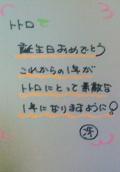 トトロ
誕生日おめでとう
これからの1年が
トトロにとって素敵な
1年になりますように